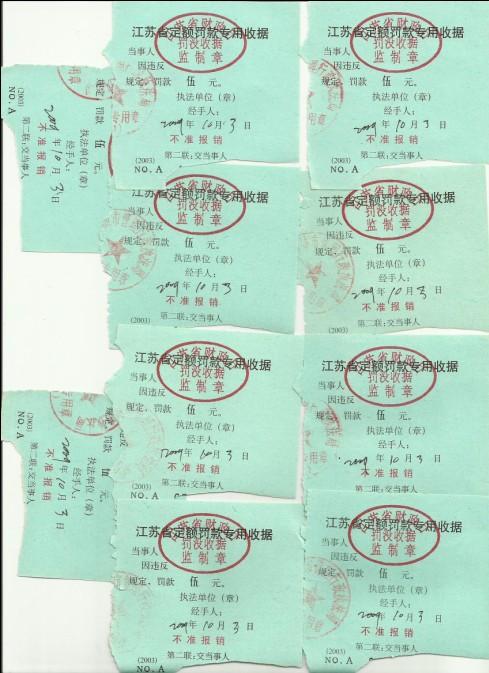 江苏省定额罚款专用收据
江苏省财政
罚没收据
监制章
当事人
因违反
规定、罚款 伍 元。
执法单位(章)
经手人:
2009年10月3日
不准报销
第二联:交当事人
(2003)
NO.A
江苏省定额罚款专用收据
江苏省财政
罚没收据
监制章
当事人
因违反
规定、罚款 伍 元。
执法单位(章)
经手人:
2009年10月3日
不准报销
第二联:交当事人
(2003)
NO.A
规定、罚款 伍 元。
执法单位(章)
经手人:
2009年10月3日
不准报销
第二联:交当事人
(2003)
NO.A
江苏省定额罚款专用收据
江苏省财政
罚没收据
监制章
当事人
因违反
规定、罚款 伍 元。
执法单位(章)
经手人:
2009年10月3日
不准报销
第二联:交当事人
(2003)
江苏省定额罚款专用收据
江苏省财政
罚没收据
监制章
当事人
因违反
规定、罚款 伍 元。
执法单位(章)
经手人:
2009年10月3日
不准报销
第二联:交当事人
(2003)
江苏省定额罚款专用收据
江苏省财政
罚没收据
监制章
当事人
因违反
规定、罚款 伍 元。
执法单位(章)
经手人:
2009年10月3日
不准报销
第二联:交当事人
(2003)
NO.A
江苏省定额罚款专用收据
江苏省财政
罚没收据
监制章
当事人
因违反
规定、罚款 伍 元。
执法单位(章)
经手人:
2009年10月3日
不准报销
第二联:交当事人
规定、罚款 伍 元。
执法单位(章)
经手人:
2009年10月3日
不准报销
第二联:交当事人
(2003)
NO.A
江苏省定额罚款专用收据
江苏省财政
罚没收据
监制章
当事人
因违反
规定、罚款 伍 元。
执法单位(章)
经手人:
2009年10月3日
不准报销
第二联:交当事人
(2003)
NO.A
江苏省定额罚款专用收据
江苏省财政
罚没收据
监制章
当事人
因违反
规定、罚款 伍 元。
执法单位(章)
经手人:
2009年10月3日
不准报销
第二联:交当事人
(2003)
NO.A